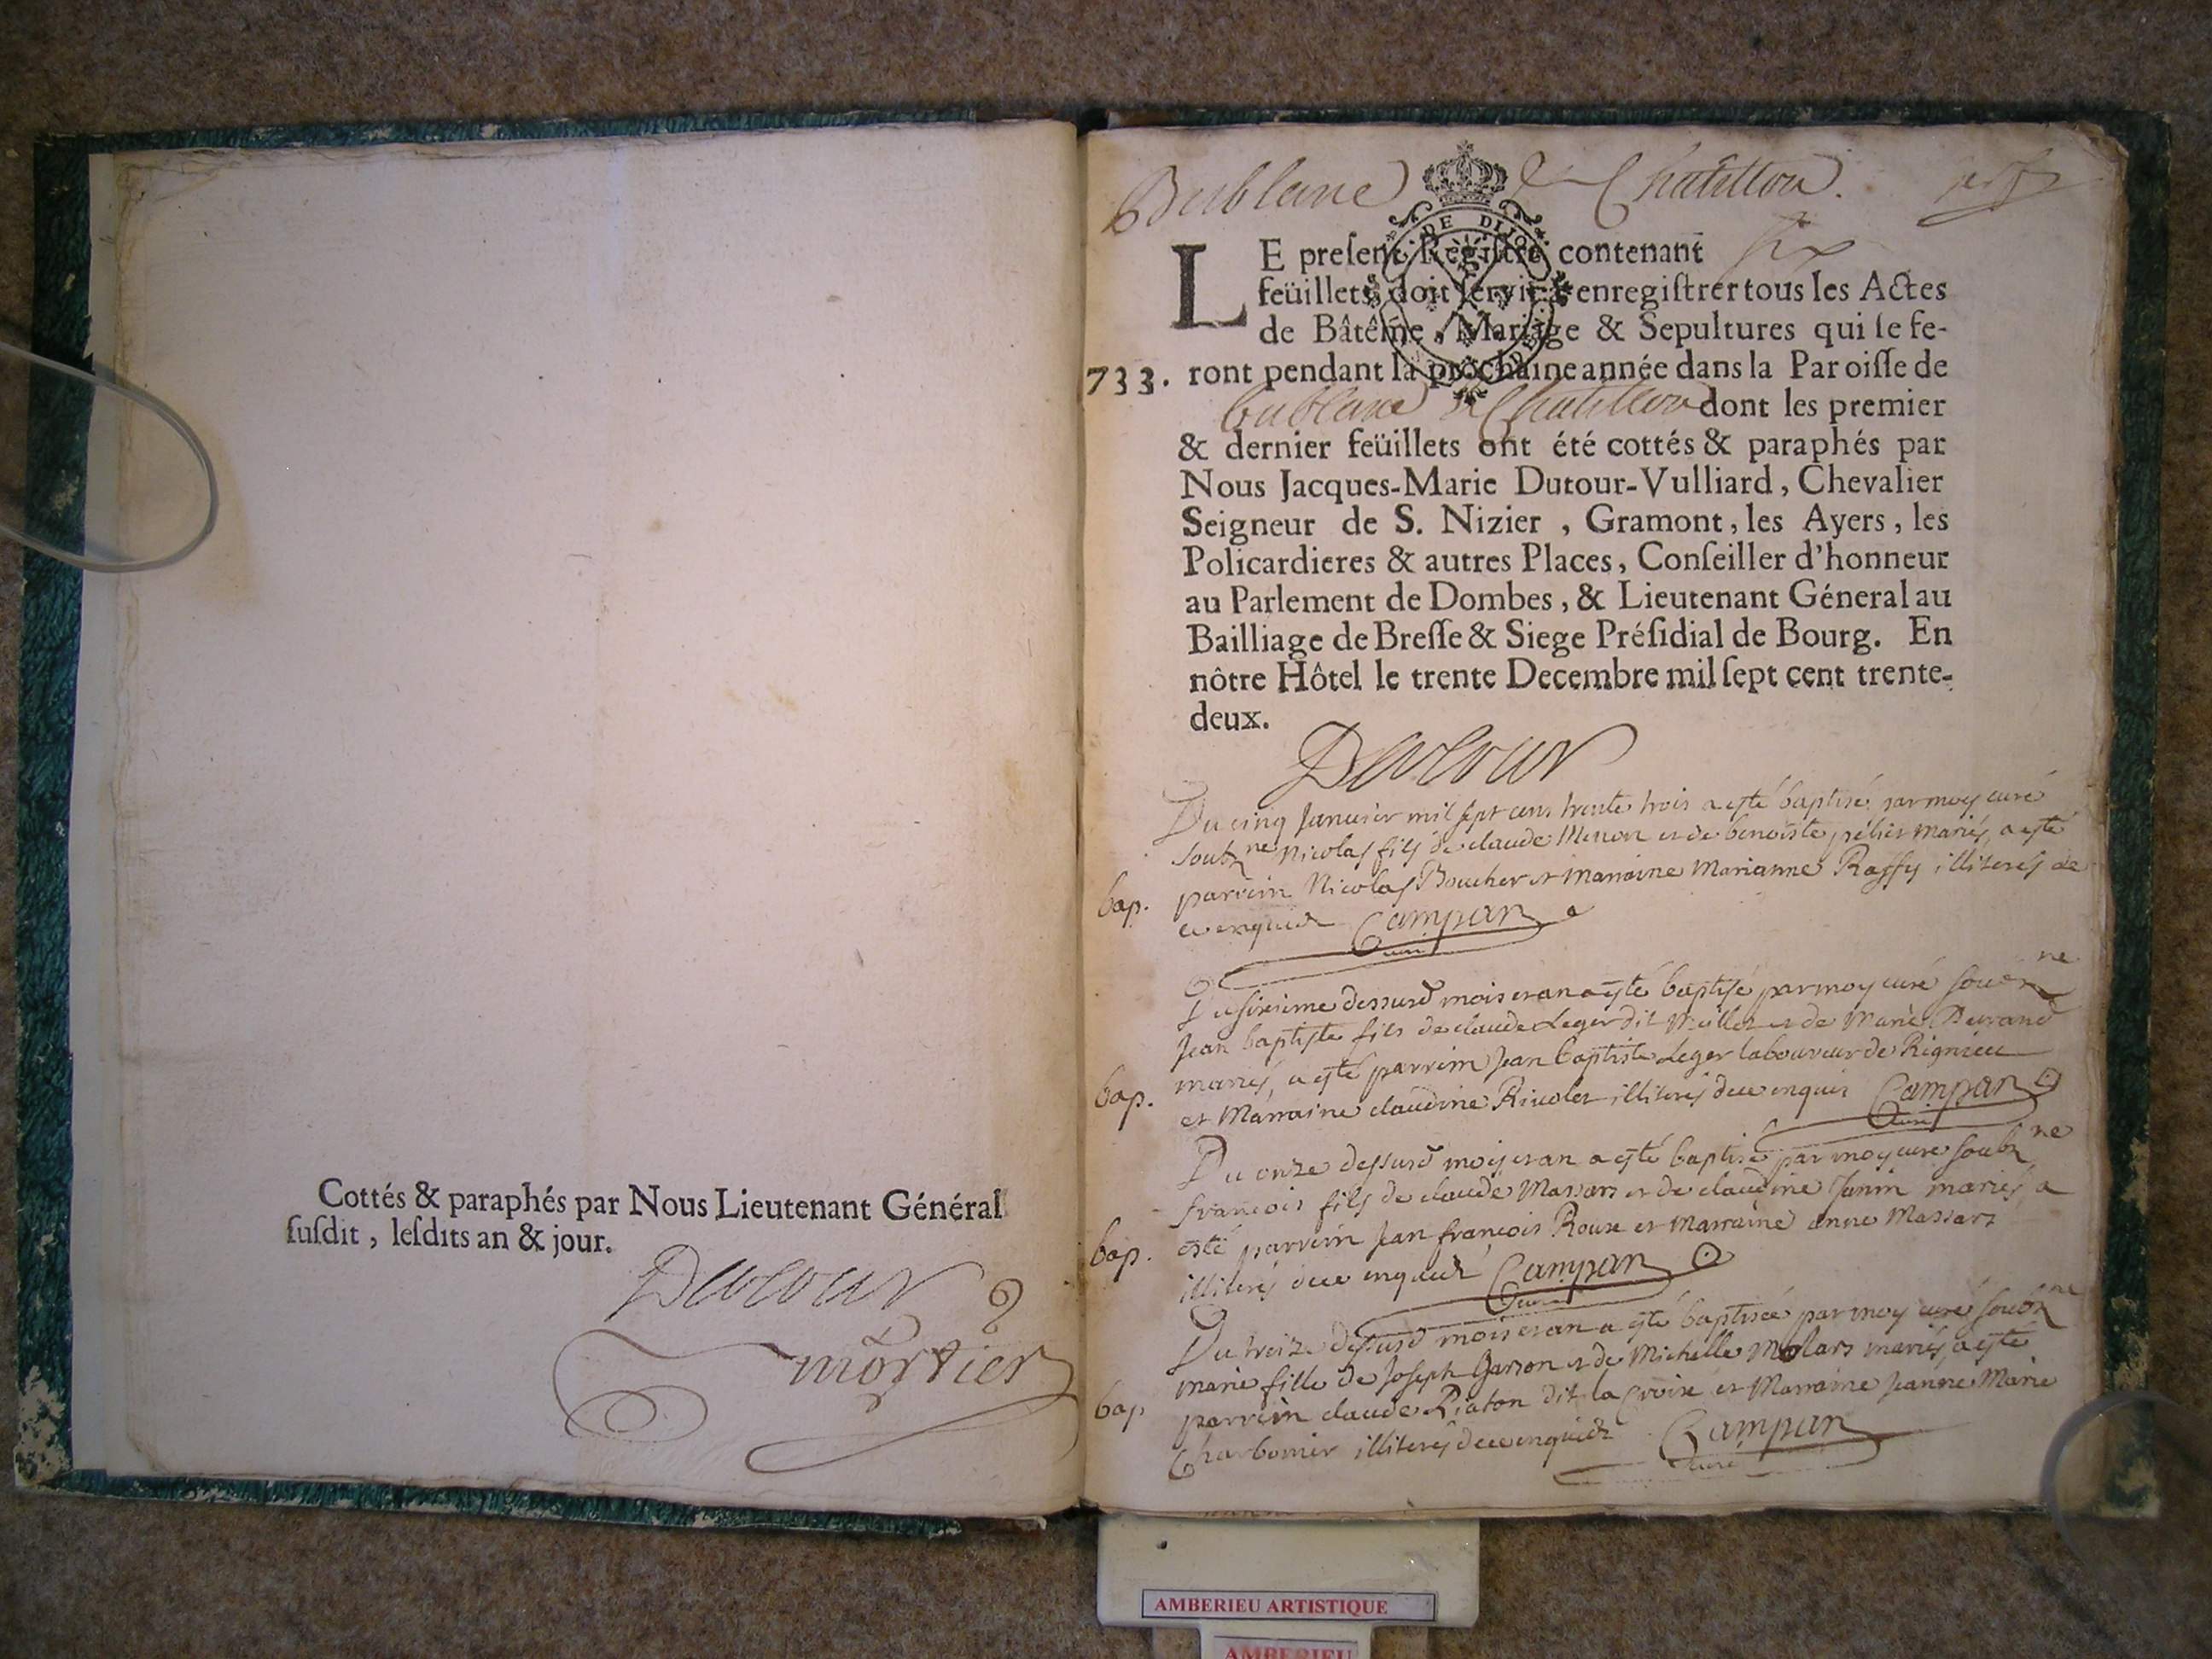 Cottés & paraphés par Nous Lieutenant Général
ſuſdit, leſdits an & jour.
Dutour
mortier
Bublane & Chatillon.
DE DIJON
LE preſent Regiſtre contenant six
feüillets, doit ſervir à enregiſtrer tous les Actes
de Bâtême, Mariage & Sepultures qui ſe fe-
733. ront pendant la prochaine année dans la Paroiſſe de
bublane & Chatillon dont les premier
& dernier feüillets ont été cottés & paraphés par
Nous Jacques-Marie Dutour-Vulliard, Chevalier
Seigneur de S. Nizier, Gramont, les Ayers, les
Policardieres & autres Places, Conſeiller d'honneur
au Parlement de Dombes, & Lieutenant Géneral au
Bailliage de Breſſe & Siege Préſidial de Bourg. En
nôtre Hôtel le trente Decembre mil ſept cent trente-
deux.
Dutour
Du cinq Januier mil sept cens trente trois a esté baptisé par moy curé
soubz.ne Nicolas fils de claude Menon et de benoiste pelier mariés, a esté
bap. parrein Nicolas Boucher et marraine Marianne Raffy illiterés de
ce enquis Campan
curé
Du sixieme dessusd mois et an a esté baptisé par moy curé soubz.ne
Jean baptiste fils de claude Leger dit Mollet et de Marie Durand
bap. mariés, a esté parrein Jean baptiste Leger laboureur de Rignieu
et Marraine claudine Riuolet illiterés de ce enquis Campan
curé
Du onze dessusd mois et an a esté baptisé par moy curé soubz.ne
francois fils de claude Massars et de claudine Janin mariés, a
bap. esté parrein Jean francois Roux et marraine anne Massars
illiterés de ce enquis Campan
curé
Du treize dessusd mois et an a esté baptisée par moy curé soubz.ne
marie fille de Joseph Garson et de Michelle Molars mariés, a esté
bap. parrein claude Piaton dit la Croix et Marraine Jeanne Marie
Charbonier illiterés de ce enquis Campan
curé
AMBERIEU ARTISTIQUE
AMBERIEU